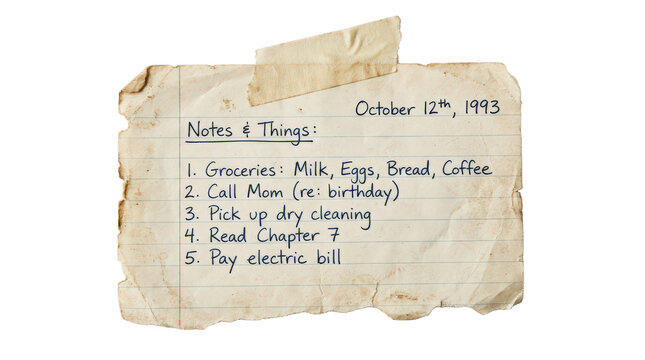 October 12th, 1993
Notes & Things:
1. Groceries: Milk, Eggs, Bread, Coffee
2. Call Mom (re: birthday)
3. Pick up dry cleaning
4. Read Chapter 7
5. Pay electric bill